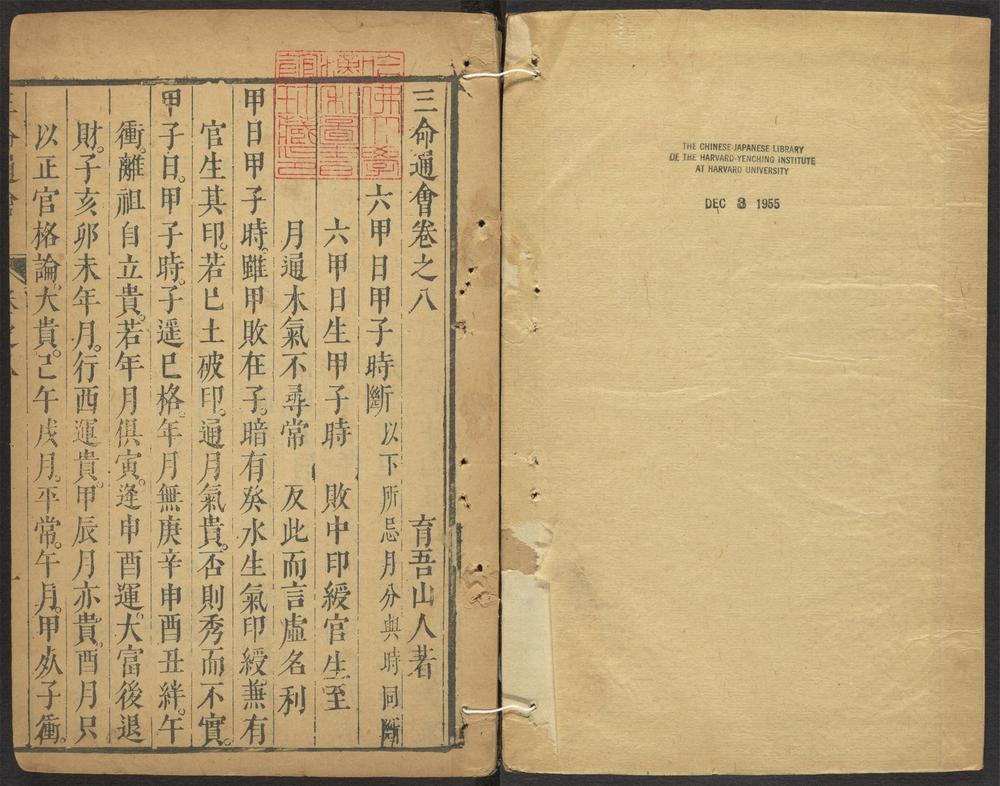 THE CHINESE-JAPANESE LIBRARY
OF THE HARVARD-YENCHING INSTITUTE
AT HARVARD UNIVERSITY
DEC 3 1955
三命通會卷之八
育吾山人著
六甲日甲子時斷以下所忌月分與時同斷
六甲日生甲子時 敗中印綬官生至
月通水氣不尋常 反此而言虛名利
甲日甲子時。雖甲敗在子。暗有癸水生氣印綬。無有
官生其印。若巳土破印。通月氣貴。否則秀而不實。
甲子日。甲子時。子遥巳格。年月無庚辛申酉丑絆。午
衝。離祖自立貴。若年月俱寅。逢申酉運。大富後退
財。子亥卯未年月。行西運貴。甲辰月亦貴。酉月只
以正官格論。大貴。己午戌月。平常。午月。甲必子衝。
哈佛大學漢和圖書館珍藏印